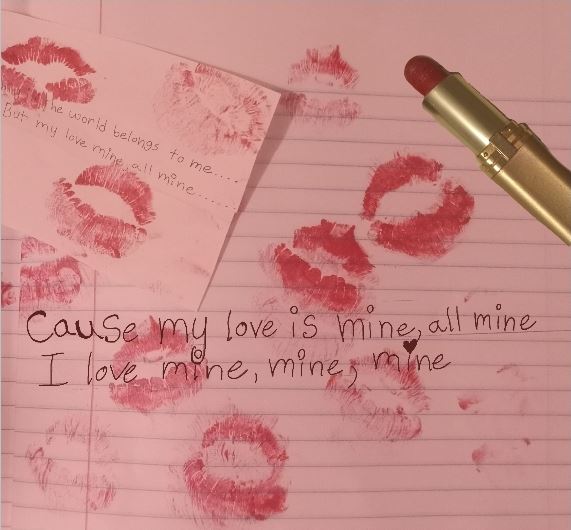 the world belongs to me....
But my love mine, all mine.....
Cause my love is mine, all mine
I love mine, mine, mine